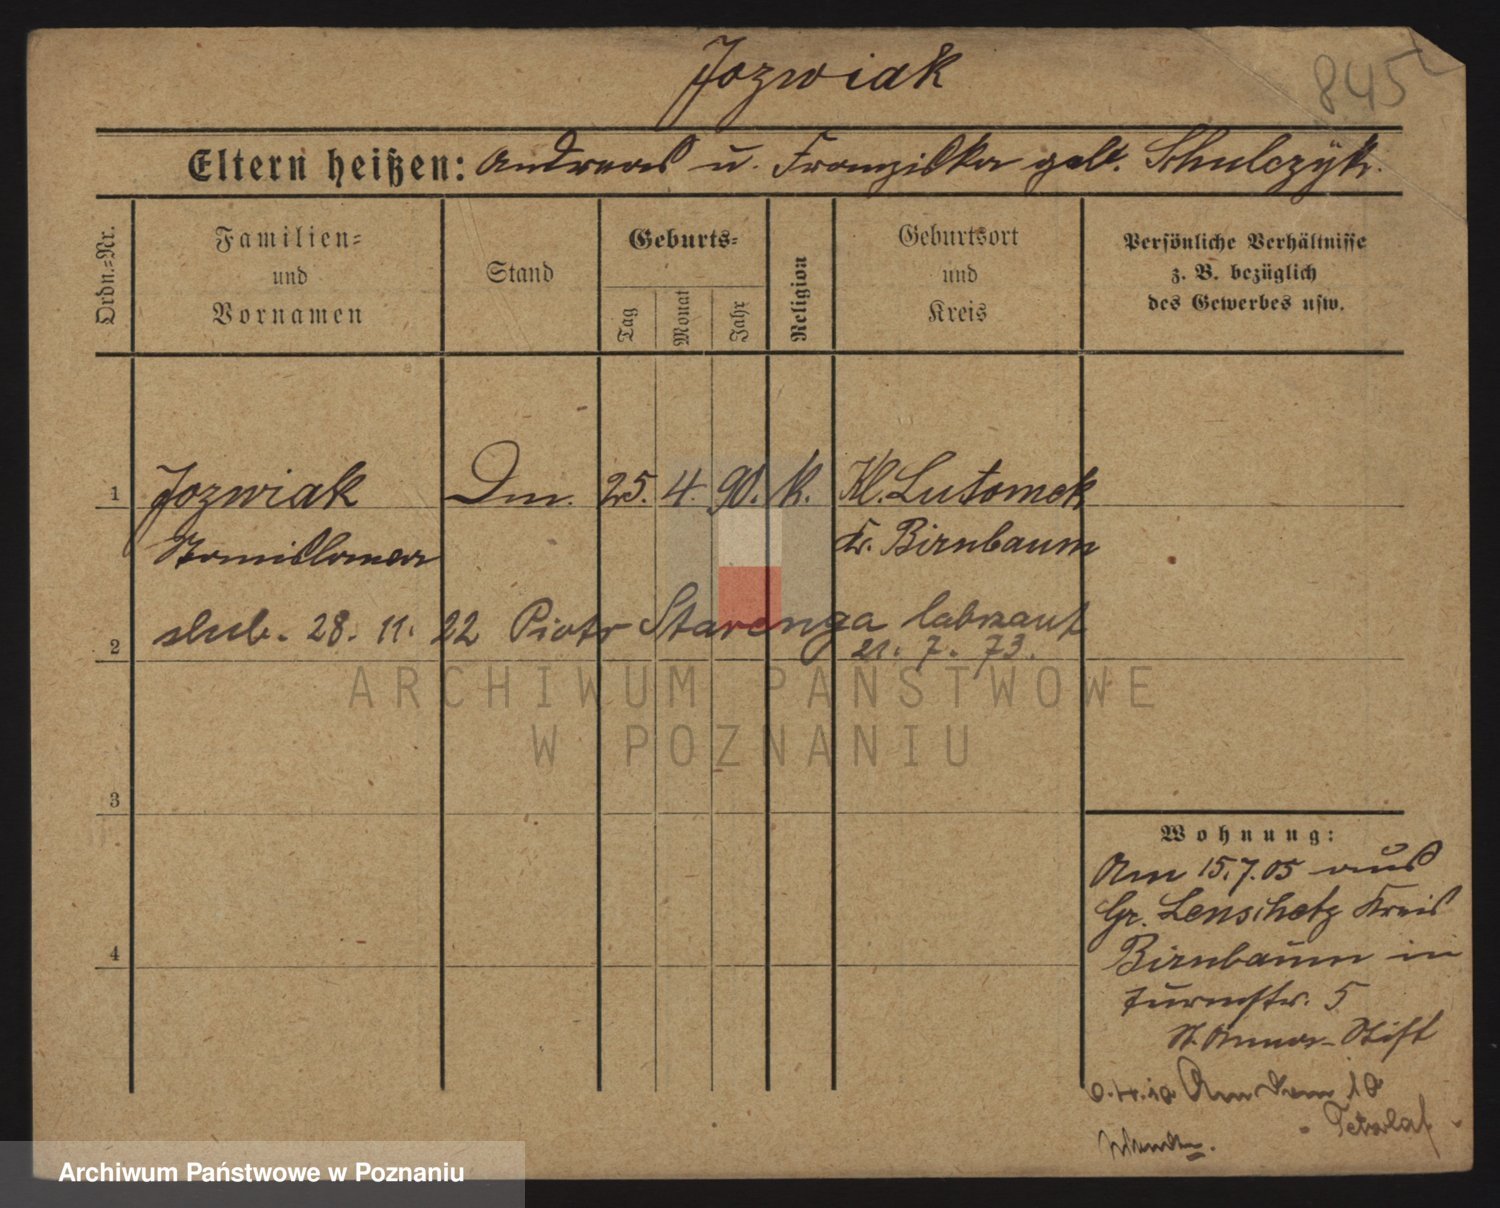 Jozwiak
845
Eltern heißen: Andreas u. Franziska geb. Schulczyk.
Ordn.-Nr.
Familien- und Vornamen
Stand
Geburts-
Tag
Monat
Jahr
Religion
Geburtsort und Kreis
Persönliche Verhältnisse z. B. bezüglich des Gewerbes usw.
1 Jozwiak Dm. 25. 4. 90. k. Kl. Lutomek
Stanislawa Kr. Birnbaum
ślub. 28. 11. 22 Piotr Starenga
2 21. 7. 73.
ARCHIWUM PAŃSTWOWE
W POZNANIU
3
Wohnung:
Am 15.7.05 aus
Gr. Lenschetz Kreis
4 Birnbaum in
Turmstr. 5
St. Annas-Stift
Am Dom 10
Archiwum Państwowe w Poznaniu